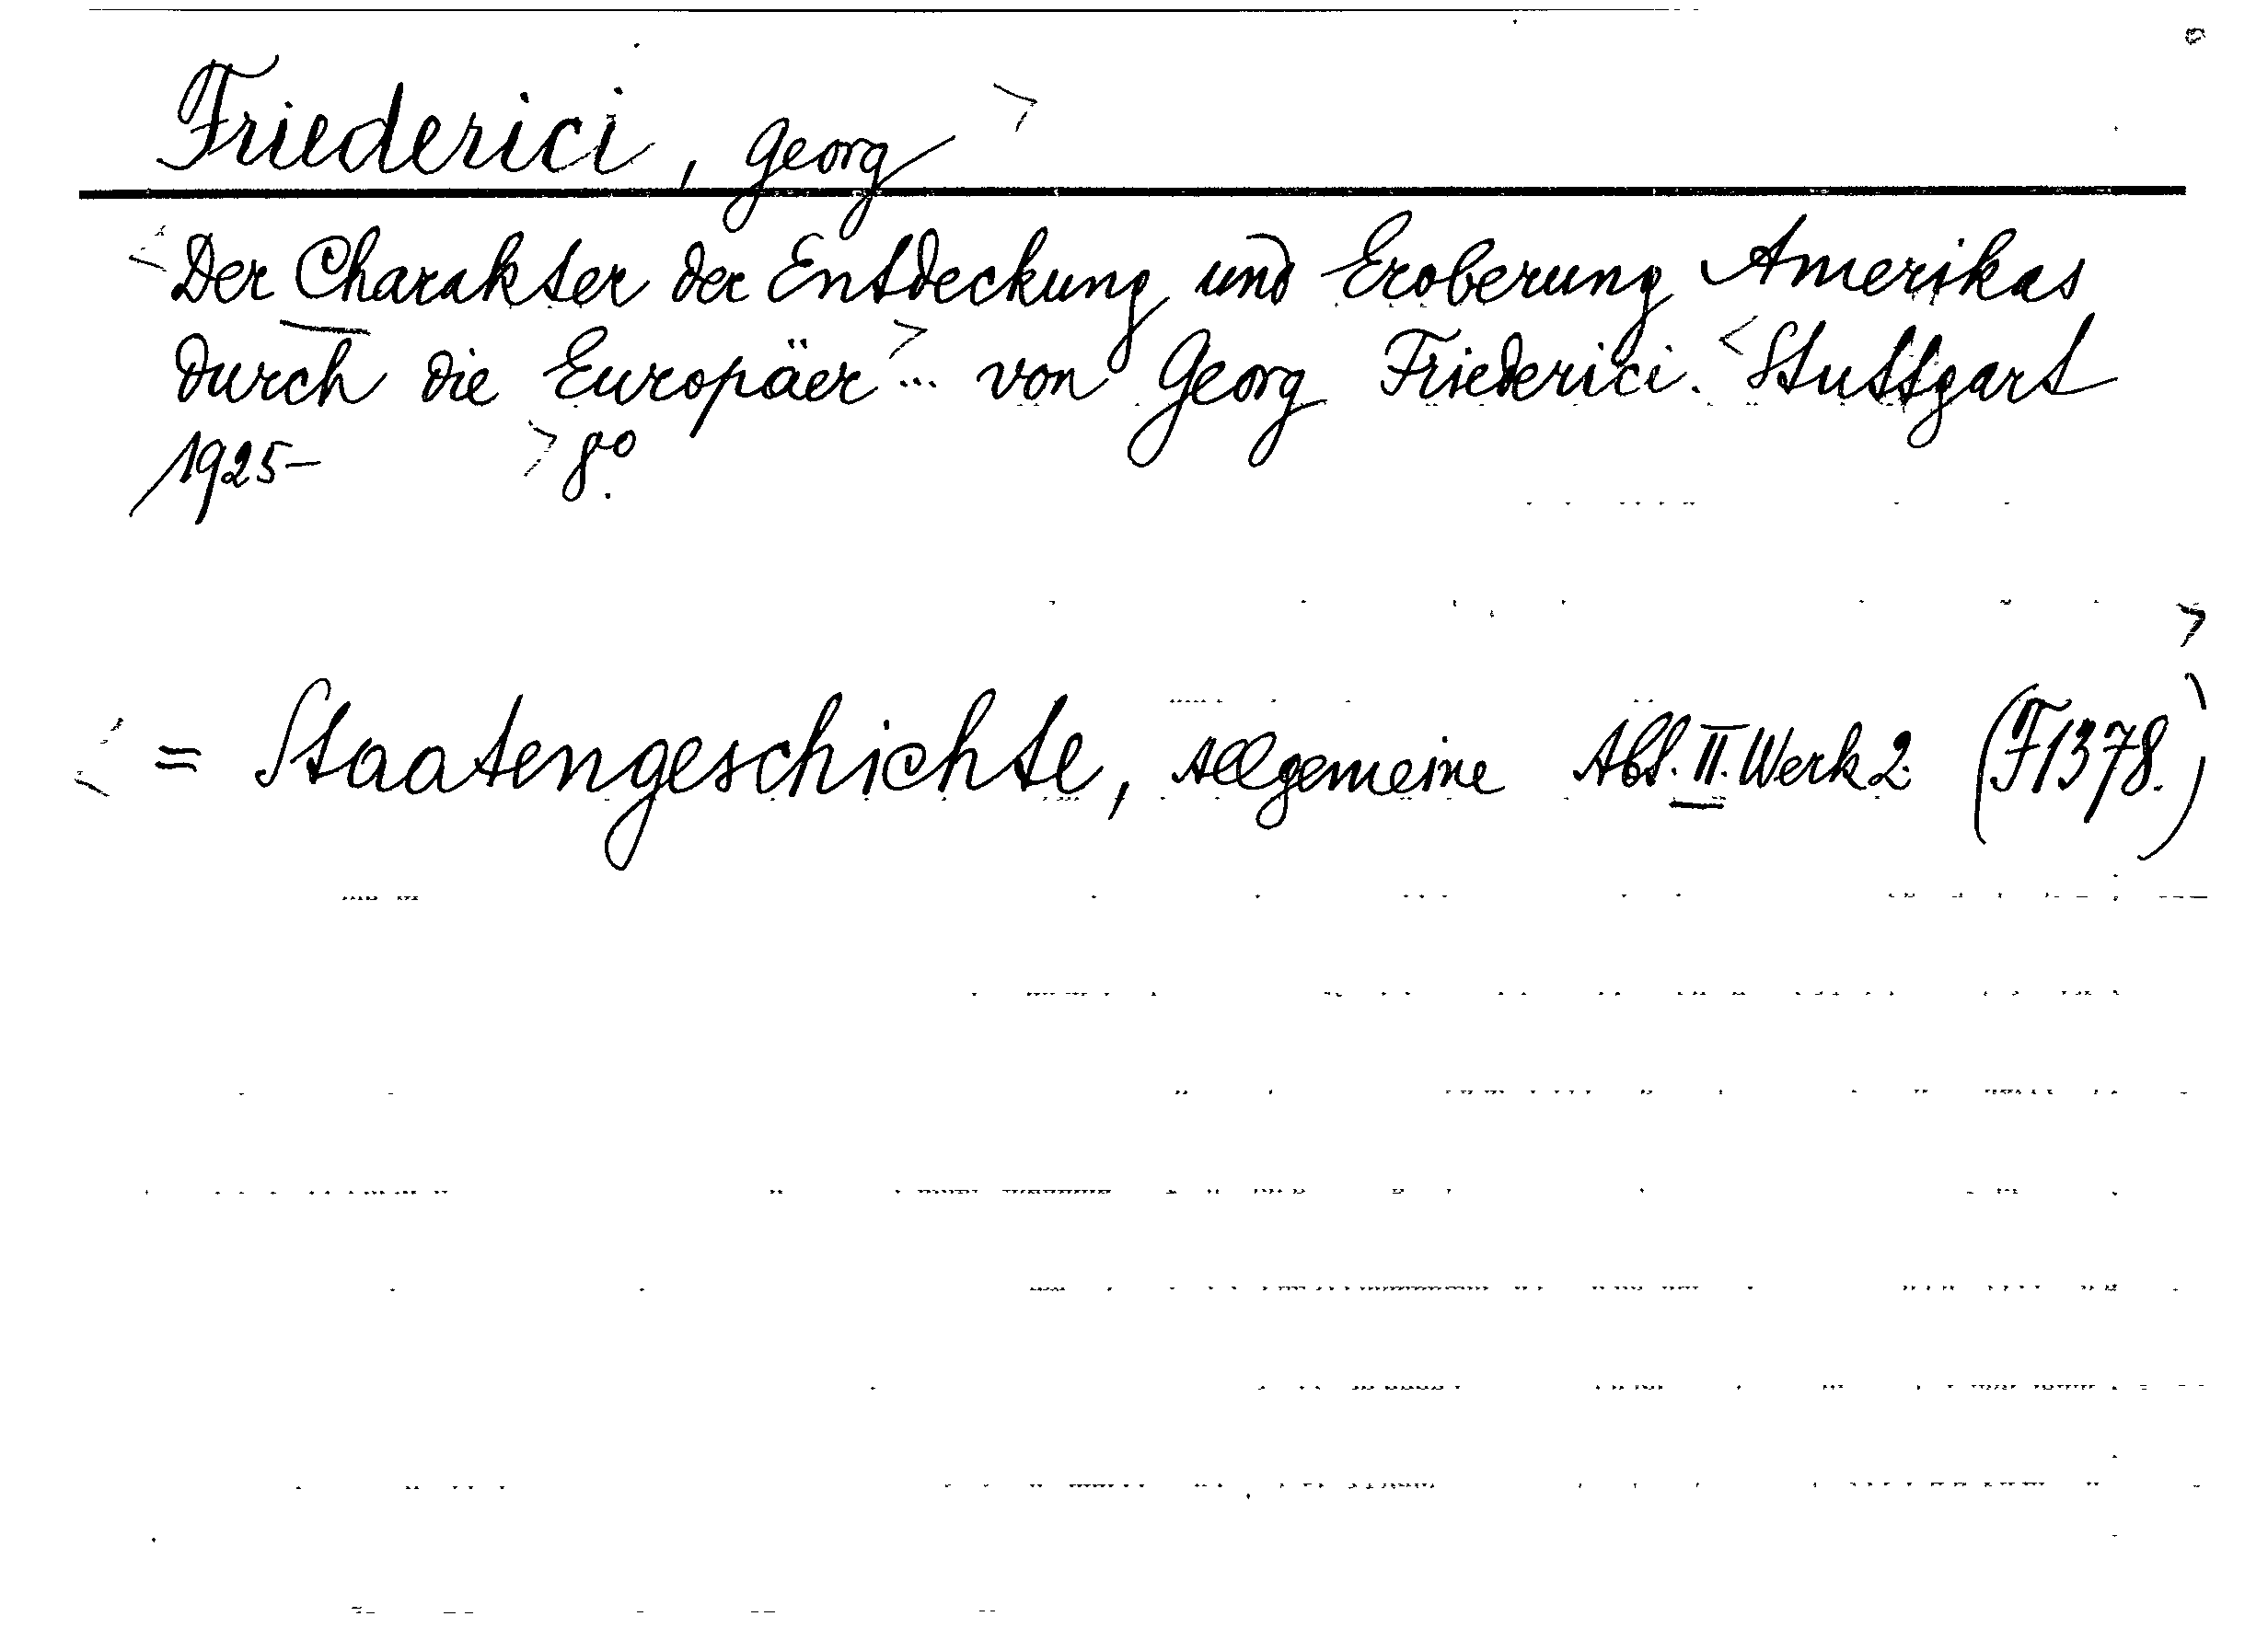 Friederici, Georg >
< Der Charakter der Entdeckung und Eroberung Amerikas
durch die Europäer > ... von Georg Friederici. < Stuttgart
1925- > 8°.
< = Staatengeschichte, Allgemeine Abt. II. Werk 2. (F1378.) >